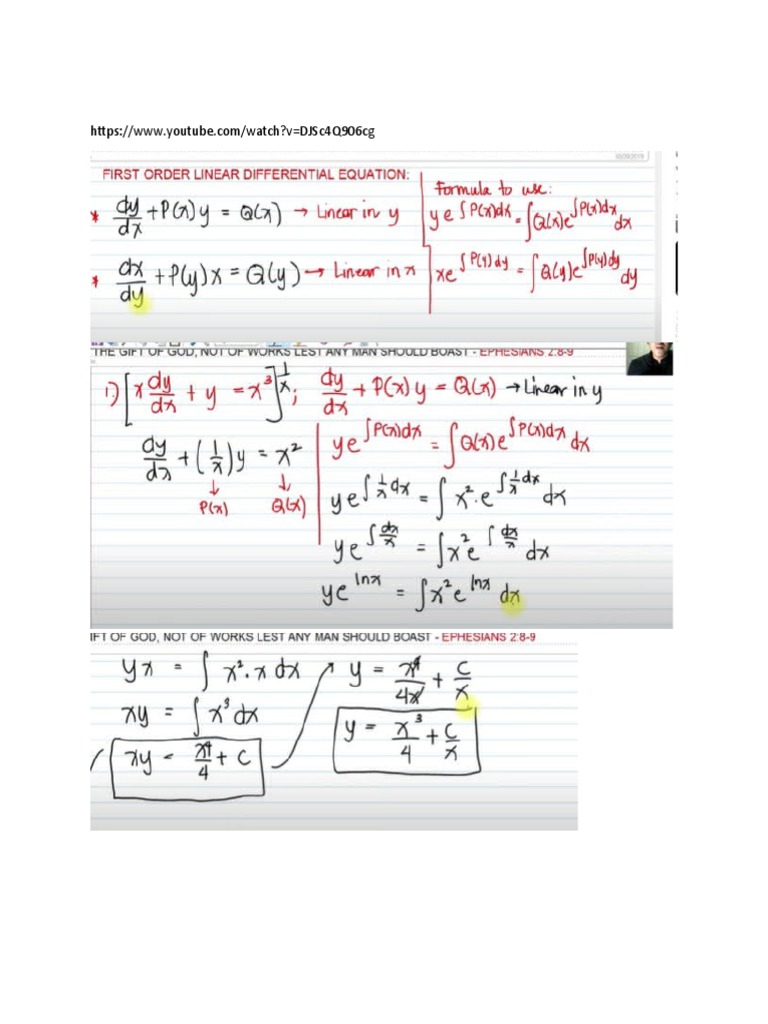 https://www.youtube.com/watch?v=DJSc4Q906cg
FIRST ORDER LINEAR DIFFERENTIAL EQUATION:
Formula to use:
* dy/dx + P(x)y = Q(x) → Linear in y
ye^∫P(x)dx = ∫Q(x)e^∫P(x)dx dx
* dx/dy + P(y)x = Q(y) → Linear in x
xe^∫P(y)dy = ∫Q(y)e^∫P(y)dy dy
THE GIFT OF GOD, NOT OF WORKS LEST ANY MAN SHOULD BOAST - EPHESIANS 2:8-9
1) [x dy/dx + y = x³] 1/x ; dy/dx + P(x)y = Q(x) → Linear in y
dy/dx + (1/x)y = x²
↓ P(x) ↓ Q(x)
ye^∫P(x)dx = ∫Q(x)e^∫P(x)dx dx
ye^∫1/x dx = ∫x²·e^∫1/x dx dx
ye^∫dx/x = ∫x²e^∫dx/x dx
ye^lnx = ∫x²e^lnx dx
IFT OF GOD, NOT OF WORKS LEST ANY MAN SHOULD BOAST - EPHESIANS 2:8-9
yx = ∫x²·x dx
xy = ∫x³dx
xy = x⁴/4 + C
y = x⁴/4x + C/x
y = x³/4 + C/x